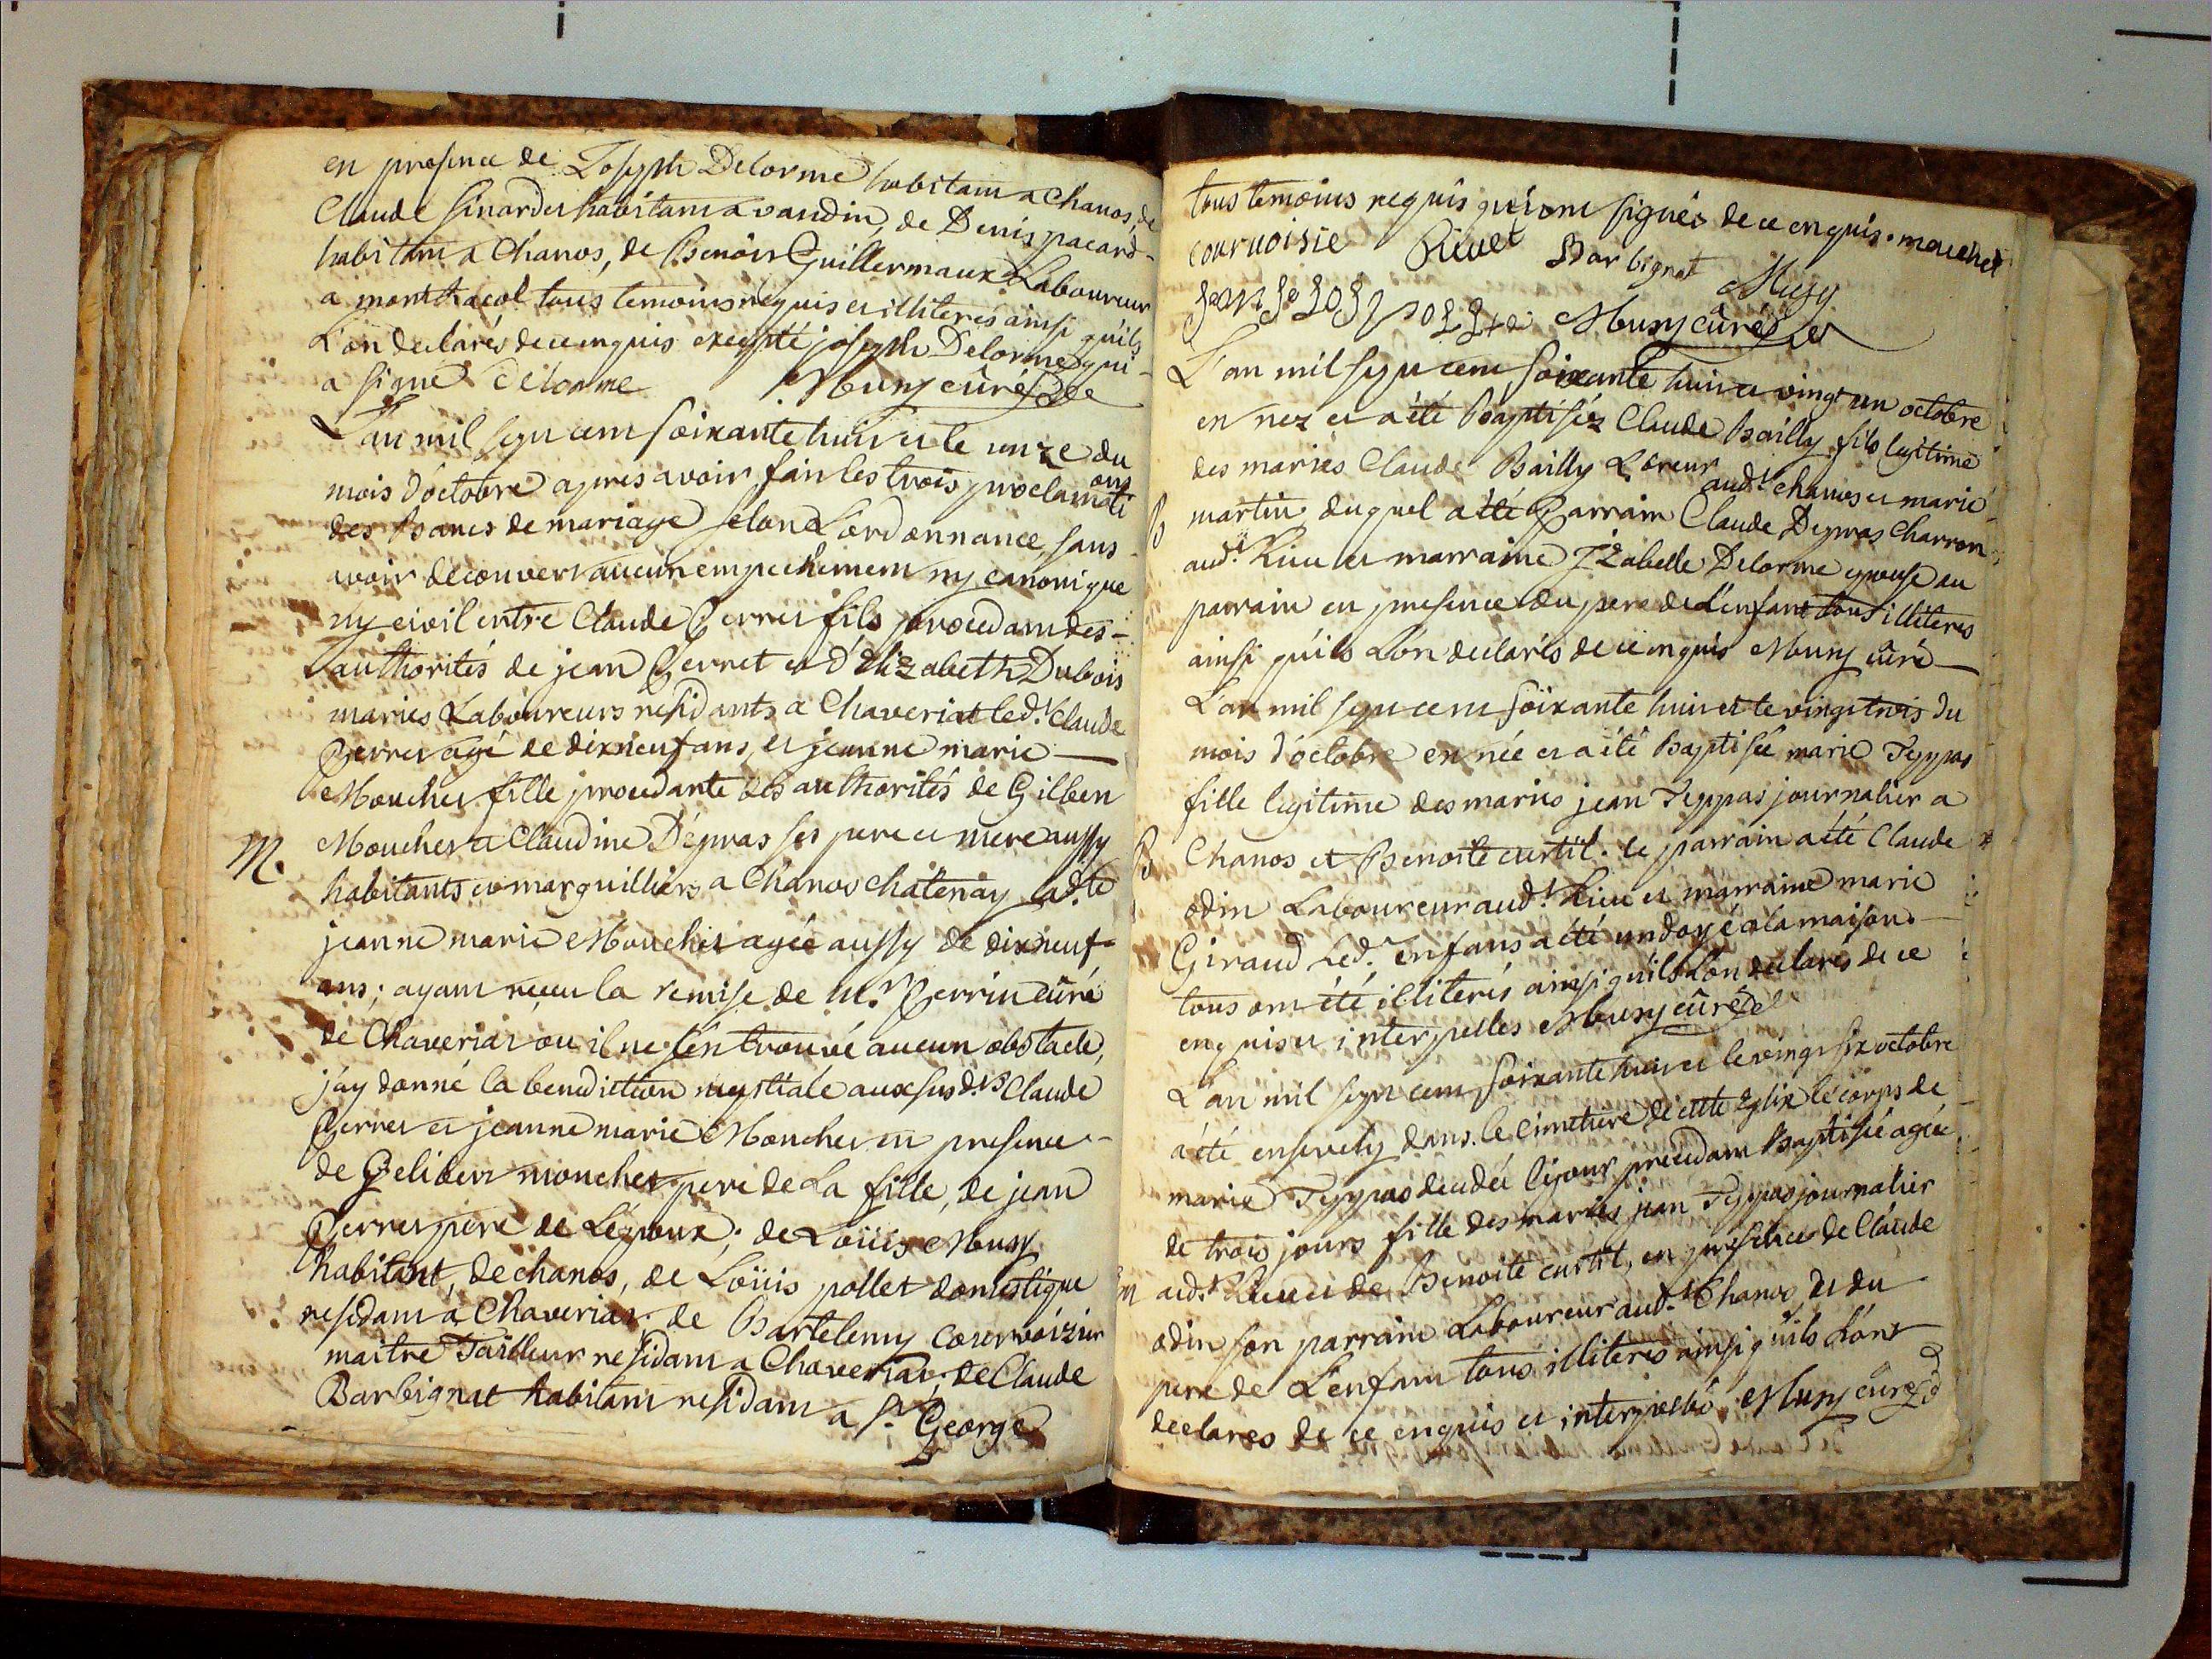 en presence de Joseph Delorme habitant a Chanos, de
Claude sinardet habitant a vandin, de Denis pacard
habitant a Chanos, de Benoit Guillermaux Laboureur
a monthracol tous temoins requis et illiterés ainsi quils
L'on declarés de ce enquis excepté joseph Delorme qui
a signé Delorme Musy curé
L'an mil sept cent soixante huit et le unze du
mois d'octobre apres avoir fait les trois proclamati
ons
des bancs de mariage selon L'ordonnance, sans
avoir decouvert aucun empechement ny canonique
ny civil entre Claude Perret fils procedant des
authorités de jean Perret et d'Elizabeth Dubois
mariés Laboureurs residants a Chaveriat led.t Claude
Perret agé de dixneuf ans, et jeanne marie
Mouchet fille procedante des authorités de Gilbert
M. Mouchet et Claudine Dépras ses pere et mere aussy
habitants et marguilliers a Chanos chatenay lad.te
jeanne marie Mouchet agée aussy de dixneuf
ans; ayant receu la remise de M.r Perrin cûré
de Chaveriat ou il ne s'en trouvé aucun obstacle,
j'ay donné la benediction nuptiale aux susd.ts Claude
Perret et jeanne marie Mouchet en presence
de Gelibert mouchet pere de La fille, de jean
Perret pere de L'époux; de Loüis Musy
habitant, de chanos, de Loüis pollet domestique
residant a Chaveriat de Bartelemy courvoizier
maitre Tailleur residant a Chaveriat; de Claude
Barbignat habitant residant a S.t George
tous temoins requis qui ont signés de ce enquis. mouchet
courvoisie Rivet Barbignat Musy
Musy cûré
L'an mil sept cent soixante huit et vingt un octobre
en nez et a été Baptiséz Claude Bailly fils legitime
des mariés Claude Bailly L.breur aud.t chanos et marie
B martin duquel a été Parrain Claude Depras Charron
aud.t Lieu et marraine Izabelle Delorme epouse au
parrain en presence du pere de L'enfant tous illiteres
ainsi qu'ils L'on declarés de ce enquis Musy cûré
L'an mil sept cent soixante huit et le vingt trois du
mois d'octobre en née et a été Baptisée marie Teppas
fille legitime des mariés jean Teppas journalier a
B Chanos et Benoite curtil. le parrain a été Claude
odin Laboureur aud.t Lieu et marraine marie
Giraud Led.t enfans a été undoyé a la maison.
tous ont été illiterés ainsi quils L'on declarés de ce
enquis et interpelles Musy cûré
L'an mil sept cent soixante huit et le vingt six octobre
a été ensevely dans le cimetiere de cette Eglise le corps de
marie Teppas decedée le jour precedant Baptisée agée
de trois jours fille des mariés jean Teppas journalier
m aud.t Lieu et de Benoite curtil, en presence de Claude
odin son parrain Laboureur aud.t Chanos et du
pere de L'enfant tous illiteres ainsi quils L'ont
declares de ce enquis et interpellé Musy curé